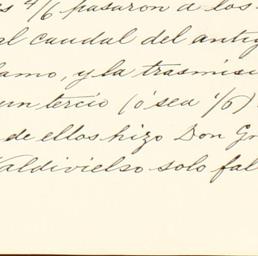 4/6 pasaron a los
al caudal del antig
lamo, y la trasmisi
un tercio (ó sea 1/6)
de ellos hizo Don Gr
Valdivielso solo fal